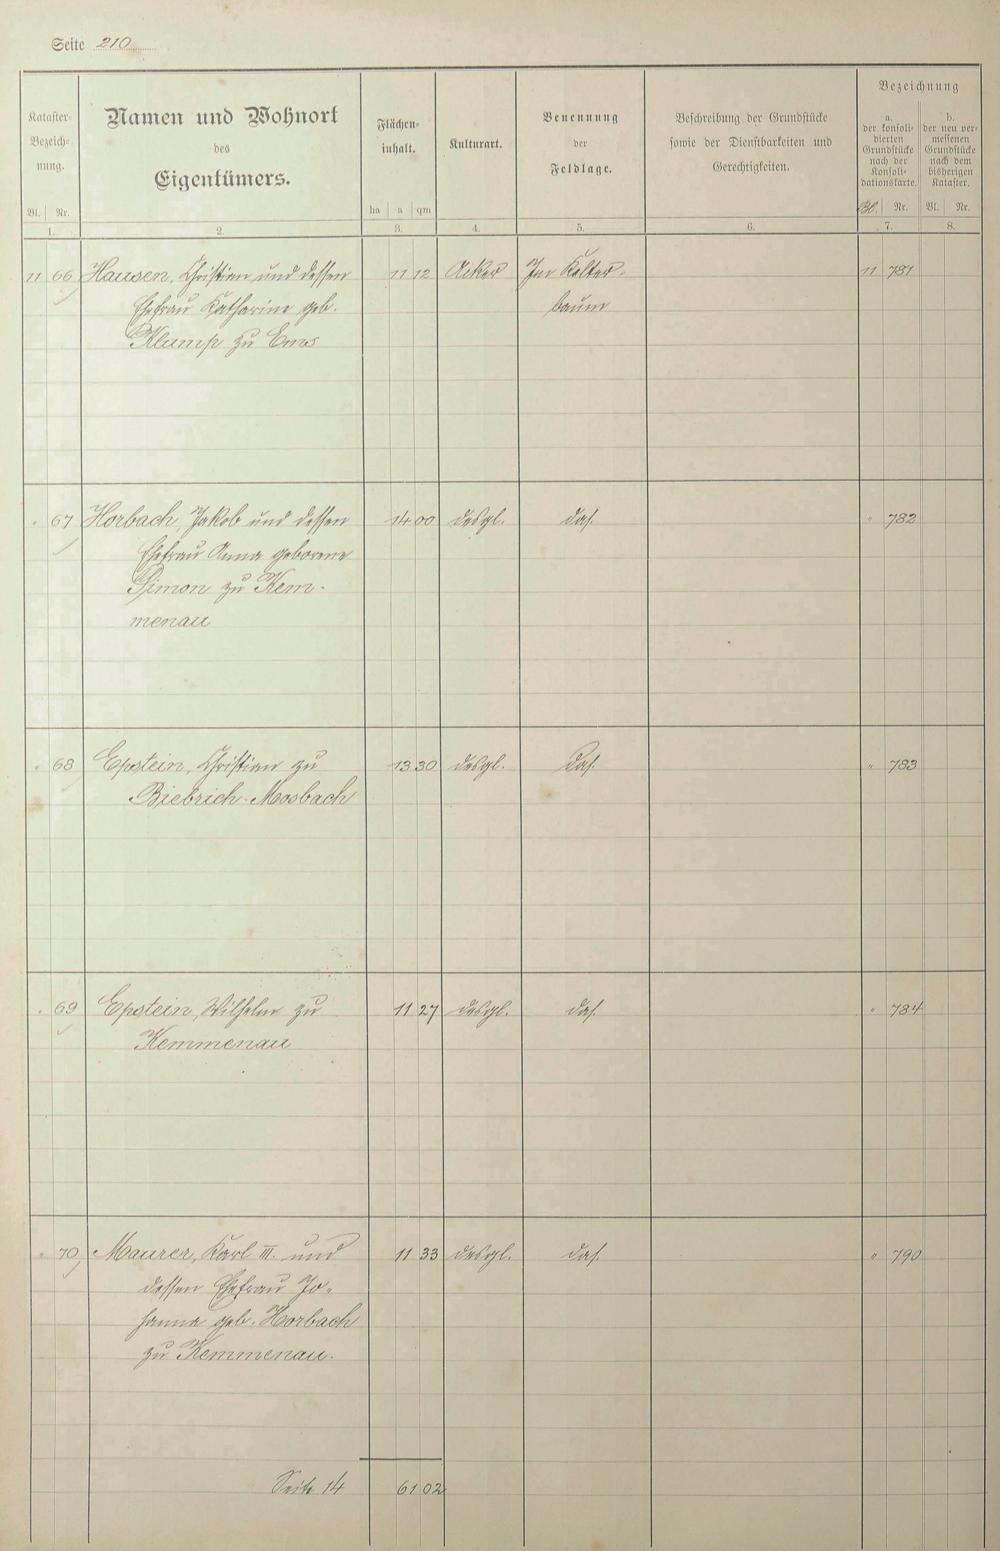 Seite 210
Kataster-
Bezeich-
nung.
Namen und Wohnort
des
Eigentümers.
Flächen-
inhalt.
Kulturart.
Benennung
der
Feldlage.
Beschreibung der Grundstücke
sowie der Dienstbarkeiten und
Gerechtigkeiten.
Bezeichnung
a.
der konsoli-
dierten
Grundstücke
nach der
Konsoli-
dationskarte.
b.
der neu ver-
messenen
Grundstücke
nach dem
bisherigen
Kataster.
Bl. Nr. ha a qm Bl. Nr. Bl. Nr.
1. 2. 3. 4. 5. 6. 7. 8.
11 66 Hausen, Christian und dessen 11 12 Acker Im Kelter- 11 781
Ehefrau Katharine geb. baum
Klump zu Ems
" 67 Horbach, Jakob und dessen 14 00 desgl. das. " 782
Ehefrau Anna geborene
Simon zu Kem-
menau
" 68 Epstein, Christian zu 13 30 desgl. das. " 783
Biebrich-Mosbach
" 69 Epstein, Wilhelm zu 11 27 desgl. das. " 784
Kemmenau
" 70 Maurer, Karl III. und 11 33 desgl. das. " 790
dessen Ehefrau Jo-
hanna geb. Horbach
zu Kemmenau.
Seite 14 61 02